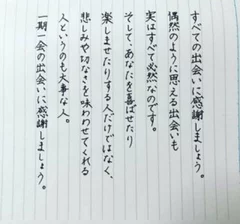 すべての出会いに感謝しましょう。
偶然のように思える出会いも
実はすべて必然なのです。
そして、あなたを喜ばせたり
楽しませたりする人だけではなく、
悲しみや切なさを味わわせてくれる
人というのも大事な人。
一期一会の出会いに感謝しましょう。